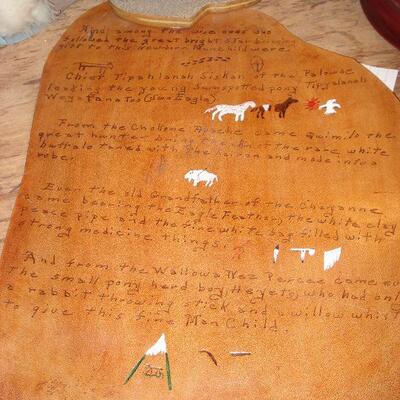 And among the wise ones who
followed the great bright Star bringing
gifts to this Newborn Manchild were:
Chief Tipahlanah Siskan of the Palouse
leading the young Sunspotted pony Tipahlanah
Weya (Sun Eagle)
From the Chokone Apache came Quimilo the
great hunter bring the skin of the rare white
buffalo taned with the hair on and made into a
robe.
Even the old Grandfather of the Cheyanne
came bearing the Eagle Feather, the white clay
peace pipe and the fine white bag filled with
strong medicine things.
And from the Wallowa Nez Percee came even
the small pony herd boy (Heyets) who had only
a rabbit throwing stick and a willow whistle
to give this fine Man Child.